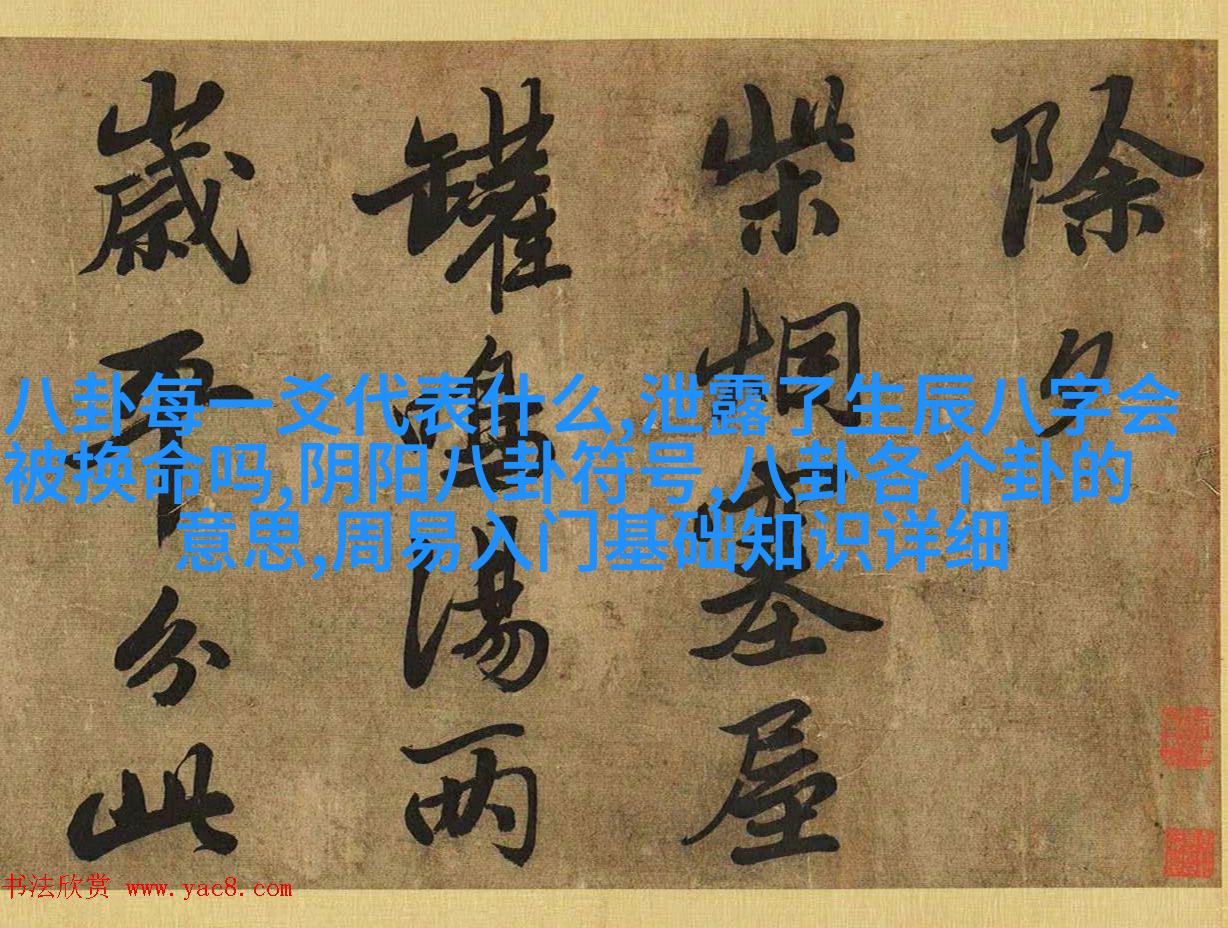 八卦每一爻代表什么,泄露了生辰八字会
被换命吗,阴阳八卦符号,八卦各个卦的
意思,周易入门基础知识详细
除夕
柴烟塞屋
罐鳴湯两
歲平分此
书法欣赏 www.yac8.com